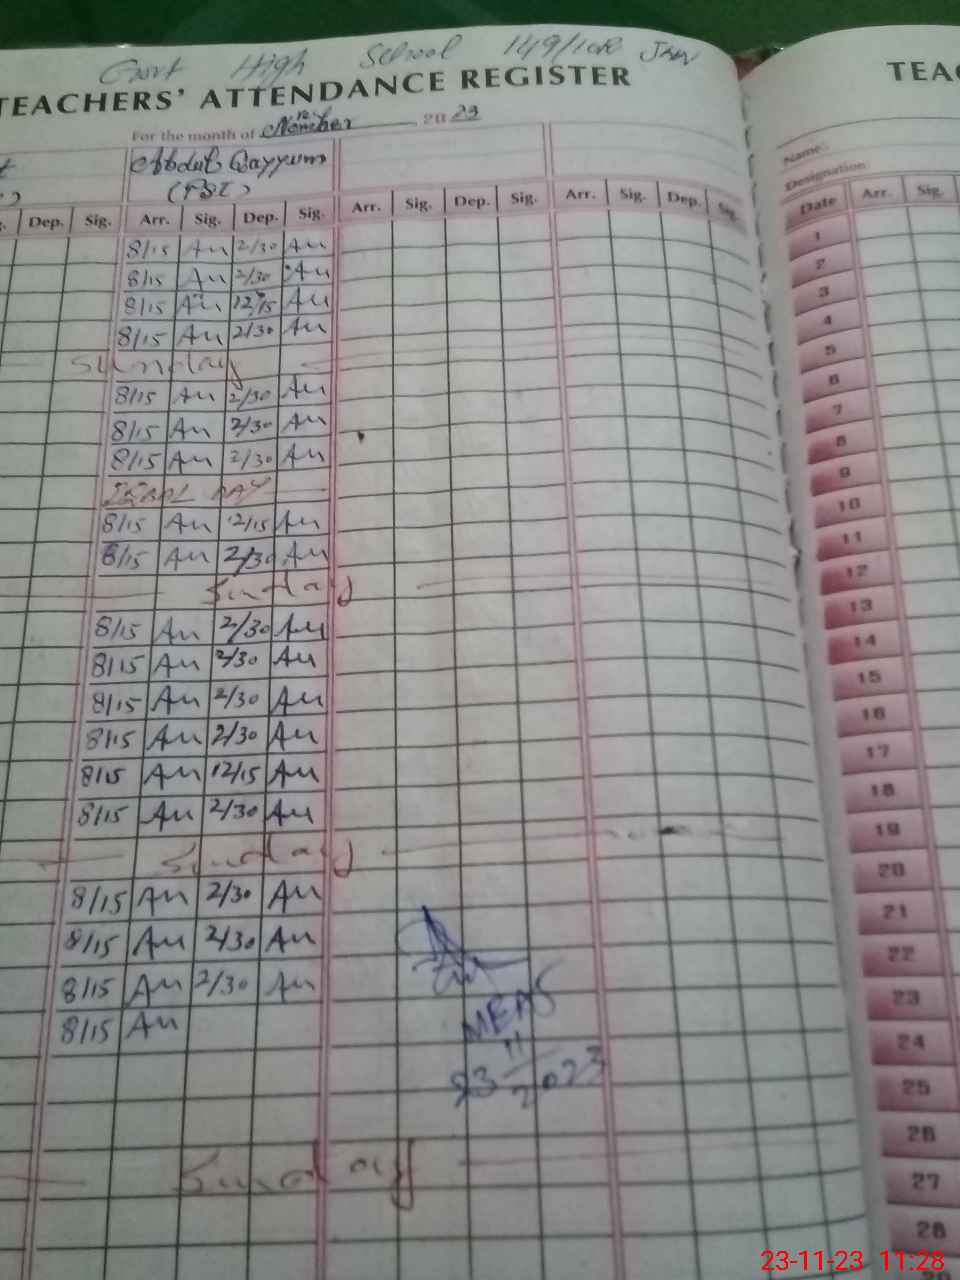 Govt High School 149/10R JHN
TEACHERS' ATTENDANCE REGISTER
TEAC
For the month of November 2023
Abdul Qayyum
Name:
Designation
Dep. Sig. Arr. Sig. Dep. Sig. Arr. Sig. Dep. Sig. Arr. Sig. Dep. Sig. Date Arr. Sig.
8/15 Au 2/30 Au 1
8/15 Au 2/30 Au 2
8/15 Au 12/15 Au 3
8/15 Au 2/30 Au 4
Sunday 5
8/15 Au 2/30 Au 6
8/15 Au 2/30 Au 7
8/15 Au 2/30 Au 8
IQBAL DAY 9
8/15 Au 12/15 Au 10
8/15 Au 2/30 Au 11
Sunday 12
8/15 Au 2/30 Au 13
8/15 Au 2/30 Au 14
8/15 Au 2/30 Au 15
8/15 Au 2/30 Au 16
8/15 Au 12/15 Au 17
8/15 Au 2/30 Au 18
Sunday 19
8/15 Au 2/30 Au 20
8/15 Au 2/30 Au 21
8/15 Au 2/30 Au 22
8/15 Au 23
MEAS
23 11 2023
24
25
Sunday 26
27
28
23-11-23 11:28